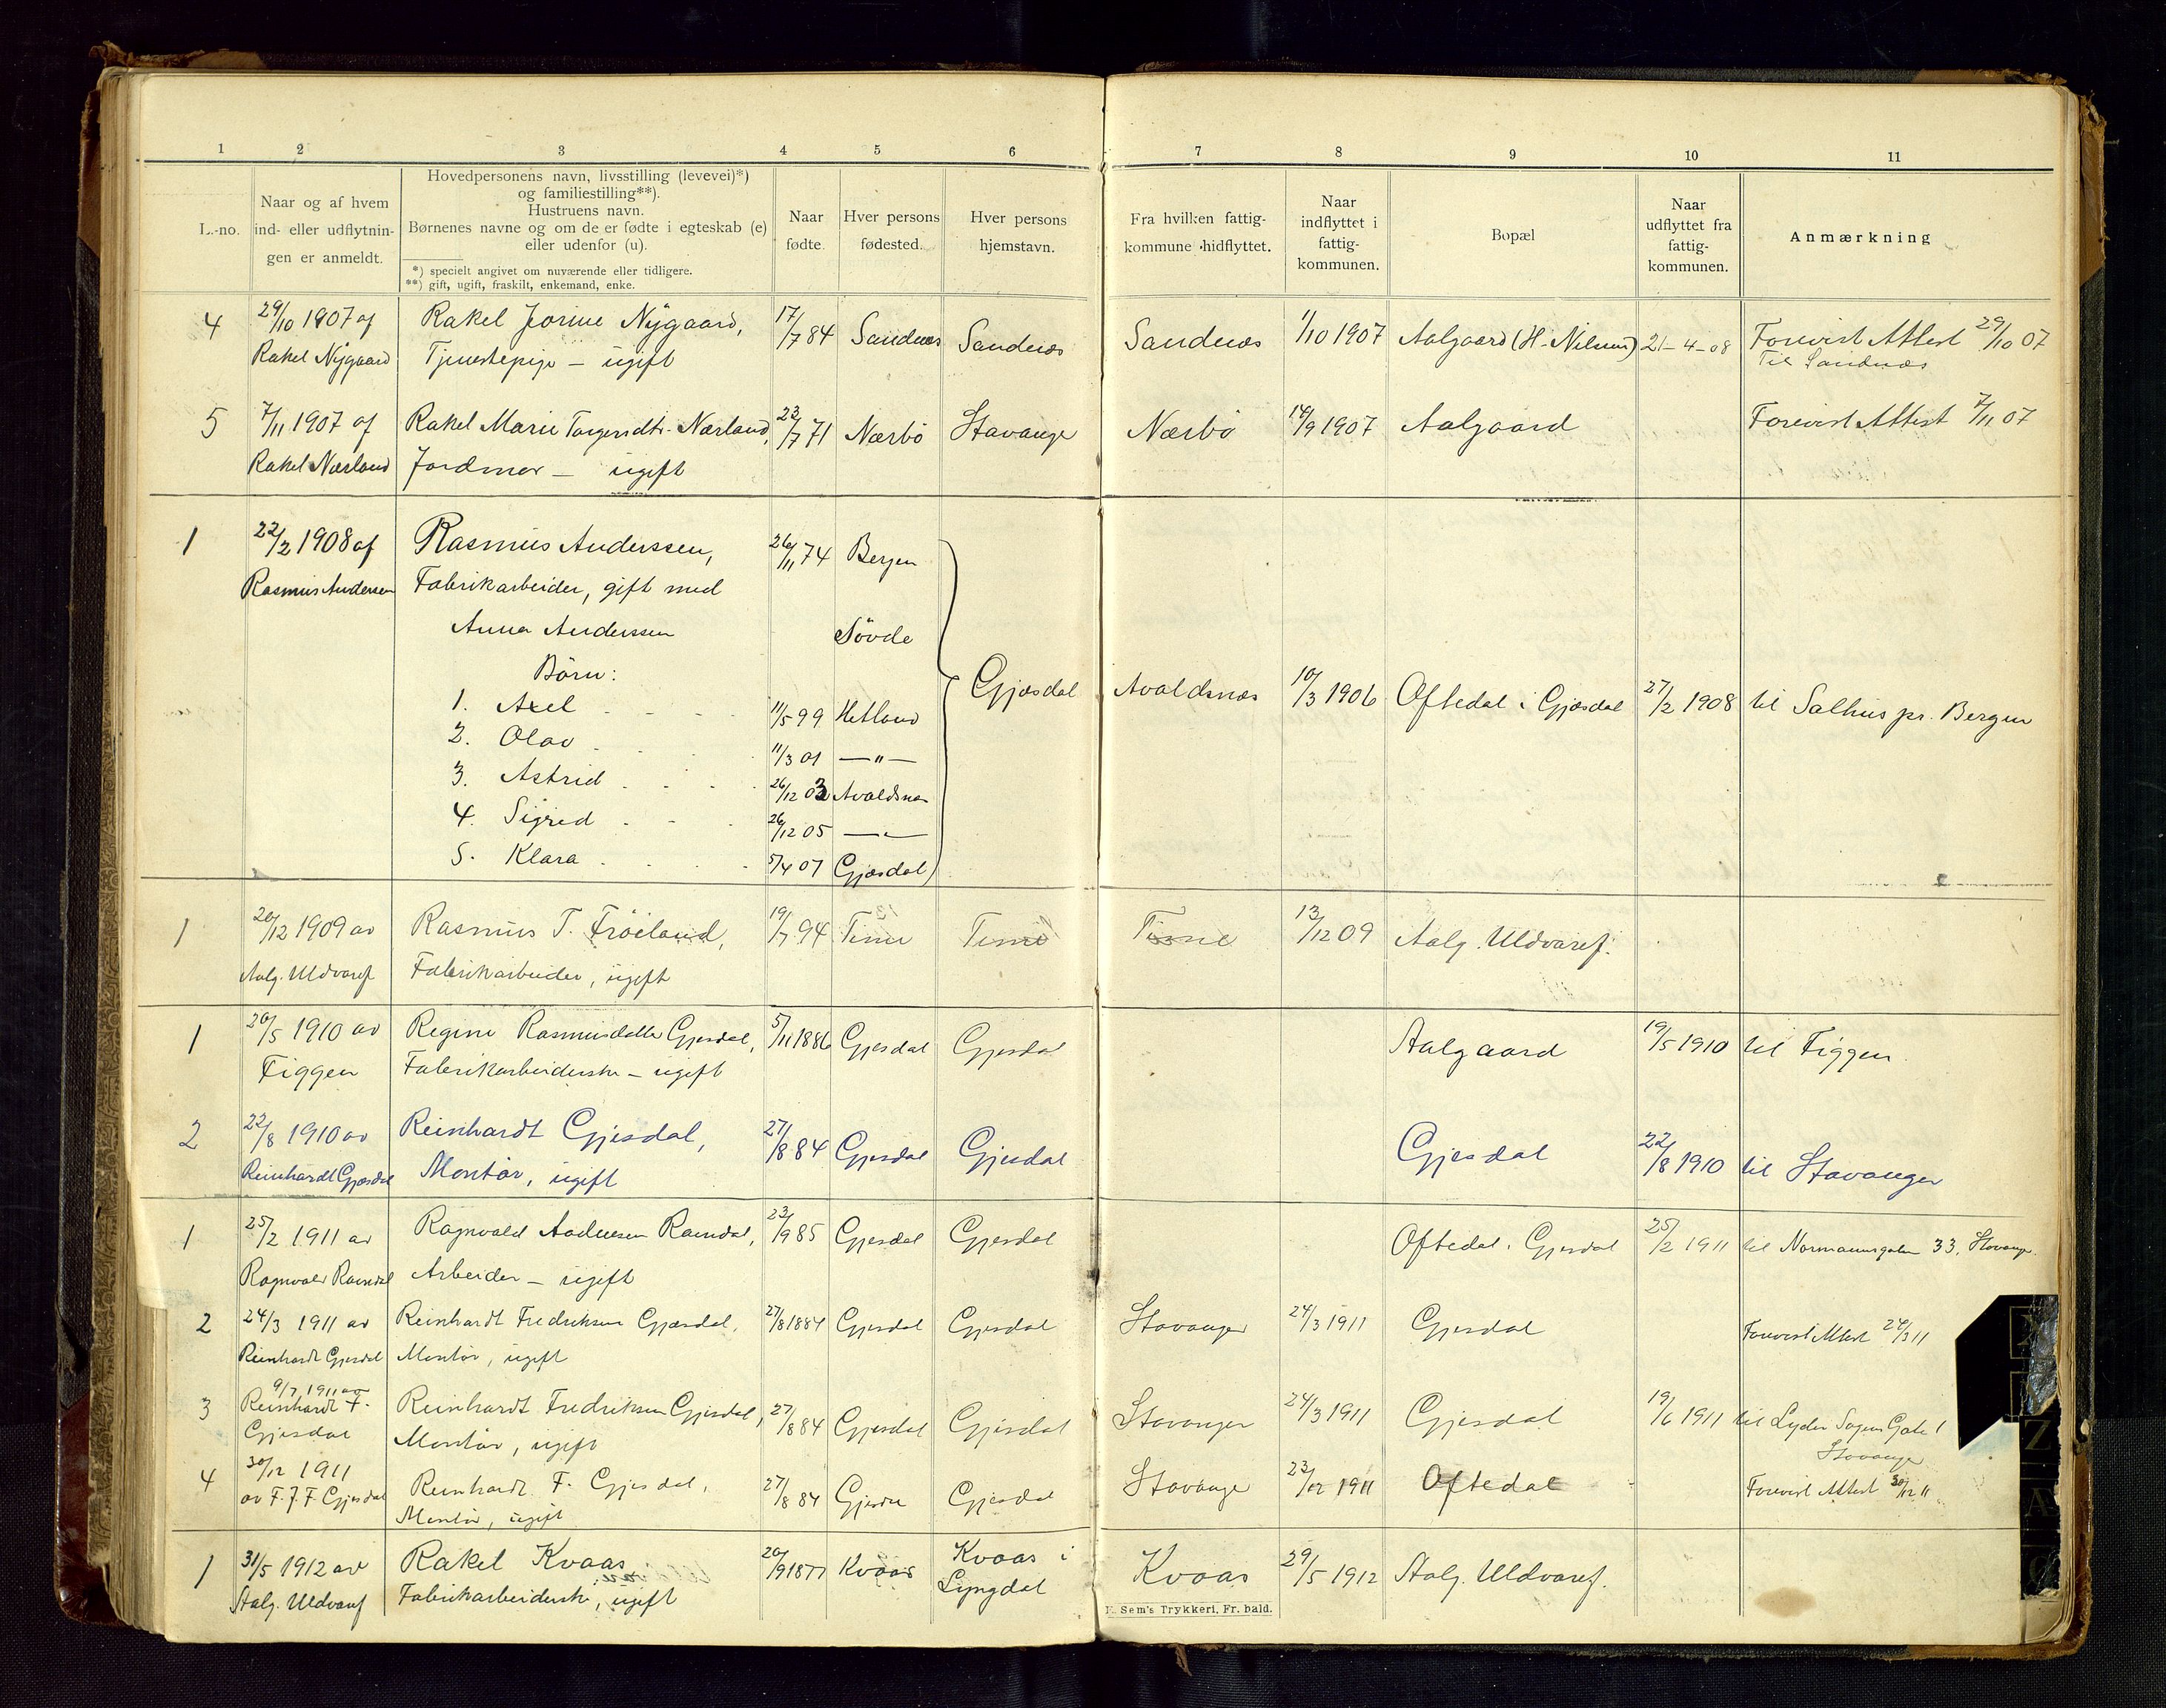 1 2 3 4 5 6 7 8 9 10 11
L.-no.
Naar og af hvem
ind- eller udflytnin-
gen er anmeldt.
Hovedpersonens navn, livsstilling (levevei)*)
og familiestilling**).
Hustruens navn.
Børnenes navne og om de er fødte i egteskab (e)
eller udenfor (u).
*) specielt angivet om nuværende eller tidligere.
**) gift, ugift, fraskilt, enkemand, enke.
Naar
fødte.
Hver persons
fødested.
Hver persons
hjemstavn.
Fra hvilken fattig-
kommune hidflyttet.
Naar
indflyttet i
fattig-
kommunen.
Bopæl
Naar
udflyttet fra
fattig-
kommunen.
Anmærkning
4 29/10 1907 af Rakel Jorine Nygaard, 17/7 84 Sandnæs Sandnæs Sandnæs 1/10 1907 Aalgaard (H. Nilsen) 21-4-08 Forevist Attest 29/10 07
Rakel Nygaard Tjenestepige – ugift Til Sandnæs
5 7/11 1907 af Rakel Marie Torgersdtr. Nærland, 23/7 71 Nærbö Stavanger Nærbö 14/9 1907 Aalgaard Forevist Attest 7/11 07
Rakel Nærland Jordmor – ugift
1 22/2 1908 af Rasmus Anderssen, 26/11 74 Bergen
Rasmus Andersen Fabrikarbeider, gift med
Anna Anderssen Sövde
Börn:
Gjæsdal Avaldsnæs 10/3 1906 Oftedal i Gjæsdal 27/2 1908 til Salhus pr. Bergen
1. Axel 11/5 99 Hetland
2. Olav 11/3 01 —"—
3. Astrid 26/12 03 Avaldsnæs
4. Sigrid 26/12 05 —"—
5. Klara 5/4 07 Gjæsdal
1 20/12 1909 av Rasmus T. Fröiland, 19/7 94 Time Time Time 13/12 09 Aalg. Uldvaref.
Aalg. Uldvaref Fabrikarbeider, ugift
1 20/5 1910 av Regine Rasmusdatter Gjesdal, 5/11 1886 Gjesdal Gjesdal Aalgaard 19/5 1910 til Figgen
Figgen Fabrikarbeiderske – ugift
2 22/8 1910 av Reinhardt Gjesdal, 27/8 84 Gjesdal Gjesdal Gjesdal 22/8 1910 til Stavanger
Reinhardt Gjesdal Montör, ugift
1 25/2 1911 av Ragnvald Aadnesen Ravndal, 23/9 85 Gjesdal Gjesdal Oftedal i Gjesdal 25/2 1911 til Normannsgaten 33, Stavanger
Ragnvald Ravndal Arbeider – ugift
2 24/3 1911 av Reinhardt Fredriksen Gjæsdal, 27/8 1884 Gjesdal Gjesdal Stavanger 24/3 1911 Gjesdal Forevist Attest 24/3 11
Reinhardt Gjesdal Montör, ugift
9/7 1911 av
3 Reinhardt F. Reinhardt Fredriksen Gjesdal, 27/8 84 Gjesdal Gjesdal Stavanger 24/3 1911 Gjesdal 19/6 1911 til Lyder Sagens Gate 1
Gjesdal Montör, ugift Stavanger
4 30/12 1911 Reinhardt F. Gjesdal, 27/8 84 Gjesdal Stavanger 23/12 1911 Oftedal Forevist Attest 30/12 11
av F. J. F. Gjesdal Montör, ugift
1 31/5 1912 av Rakel Kvaas 20/9 1877 Kvaas Kvaas i Kvaas 29/5 1912 Aalg. Uldvaref.
Aalg. Uldvaref Fabrikarbeiderske, ugift Lyngdal
Sem's Trykkeri, Fr. hald.